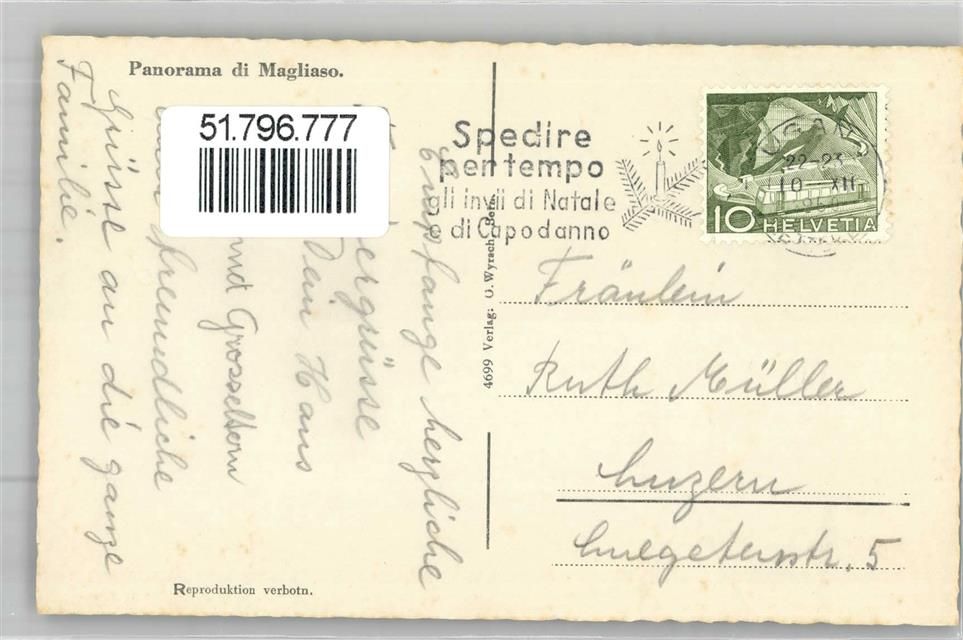 Panorama di Magliaso.
51.796.777
Spedire
per tempo
gli invii di Natale
e di Capodanno
22-23
10 XII
10 HELVETIA
Empfange herzliche
ergrüsse
Dein Hans
und Grosseltern
freundliche
Grüsse an die ganze
Familie.
4699 Verlag: O. Wyrach, Bern
Fräulein
Ruth Müller
Luzern
Luegetenstr. 5
Reproduktion verbotn.